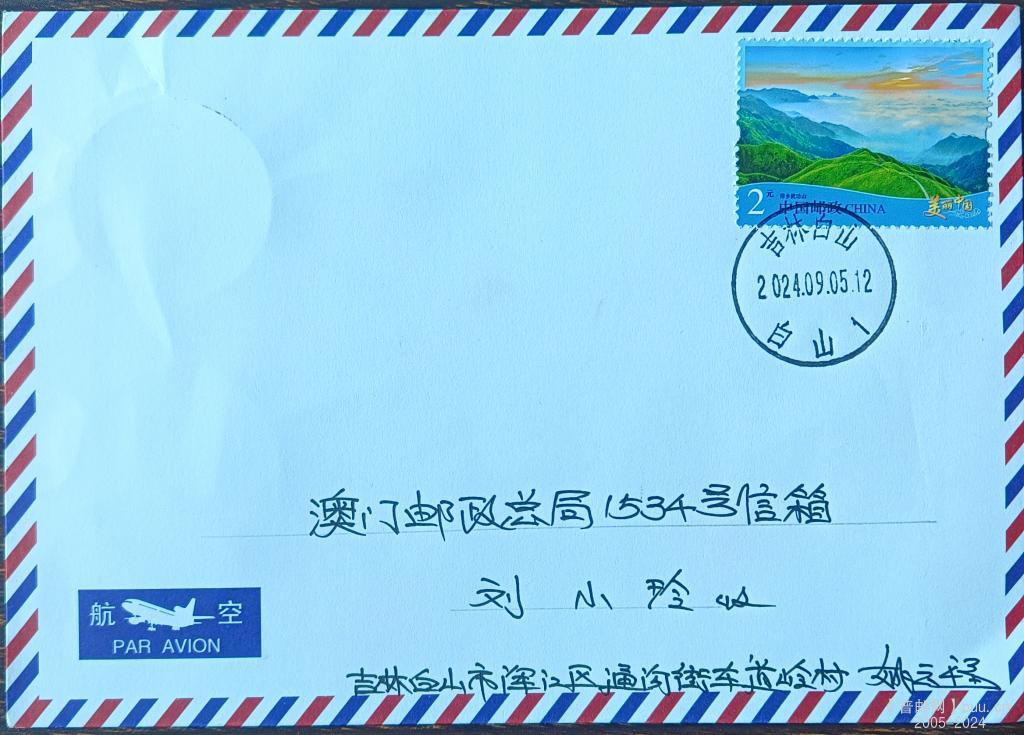 2元
中国邮政 CHINA
美丽中国
吉林白山
2024.09.05.12
白山 1
澳门邮政总局1534号信箱
刘小玲收
航空
PAR AVION
吉林白山市浑江区通沟街车道岭村
2005-2024